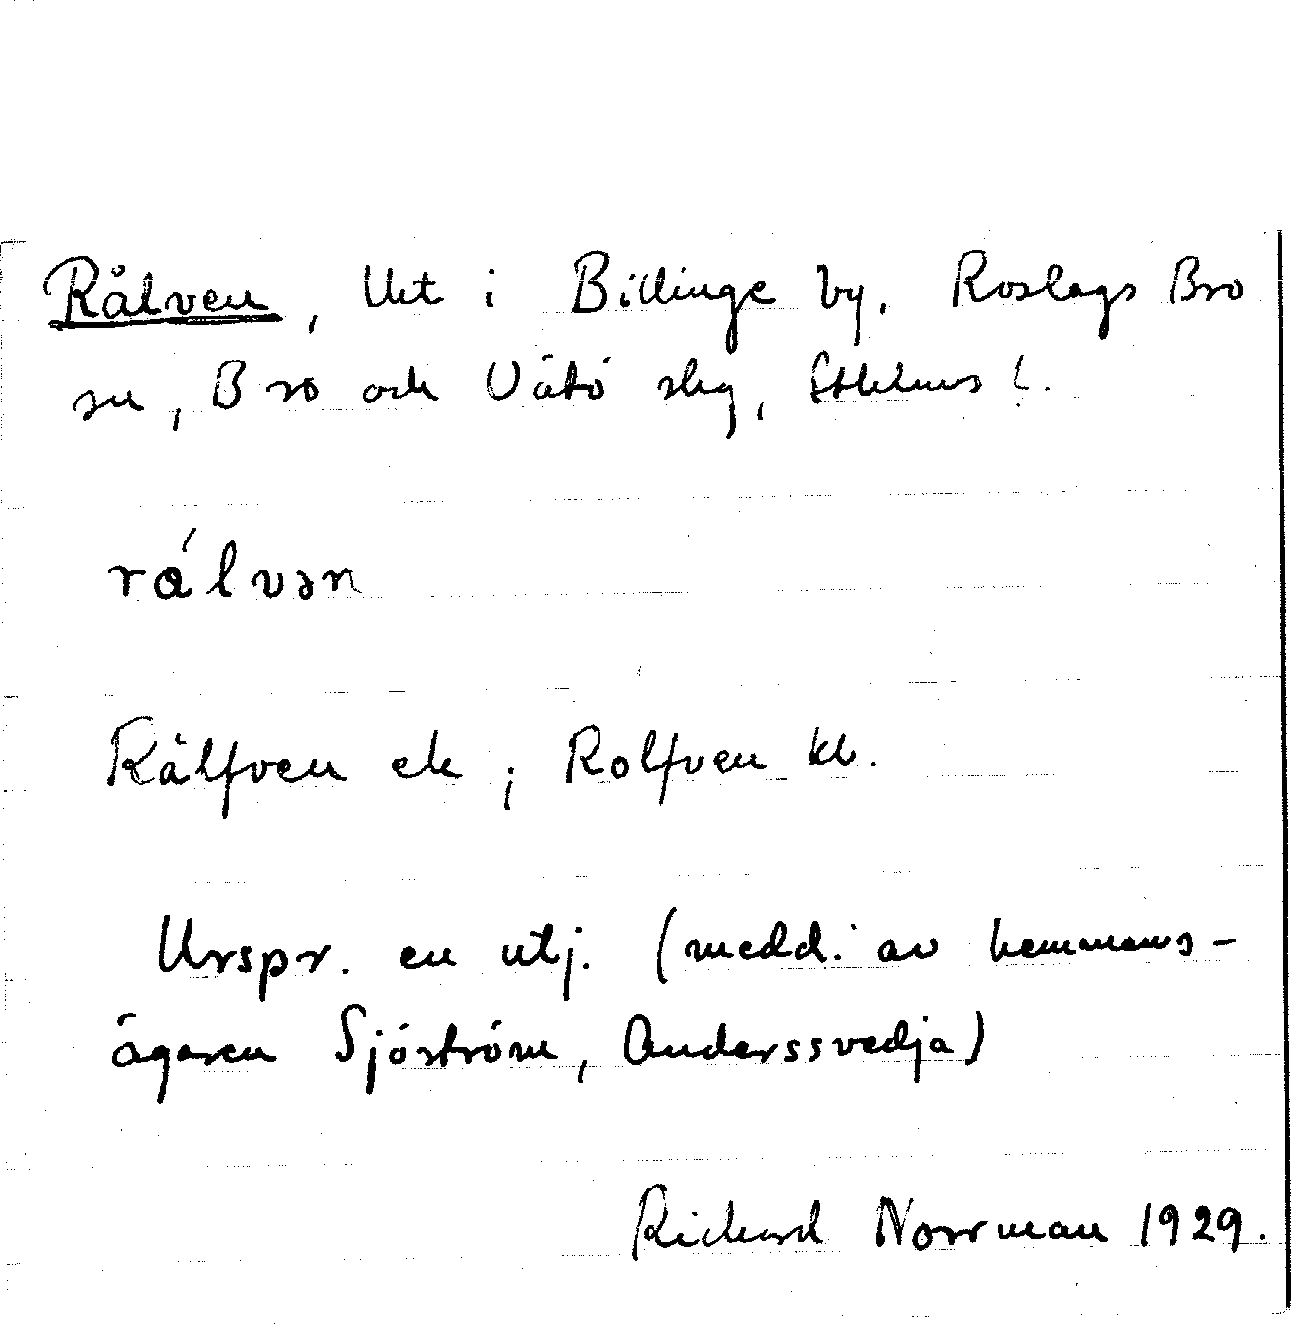 Rålven, Uet i Billinge by, Roslags Bro
sn, Bro och Vätö slg, Sthlms l.
rǻlvən
Rålfven ek; Rolfven kb.
Urspr. en utj. (medd. av hemmans-
ägaren Sjöström, Anderssvedja)
Richard Norrman 1929.